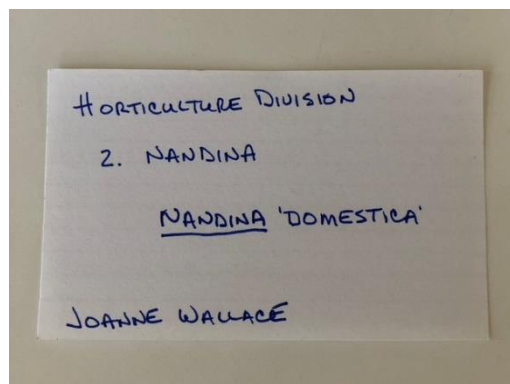 HORTICULTURE DIVISION
2. NANDINA
NANDINA 'DOMESTICA'
JOANNE WALLACE